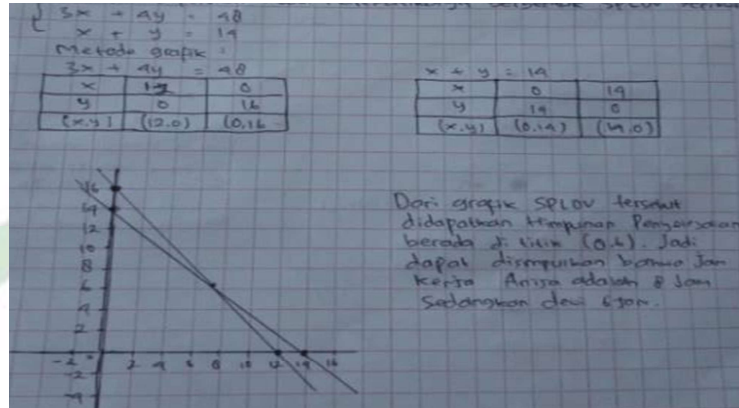 3x + 4y = 48
x + y = 14
Metode grafik :
3x + 4y = 48
x 12 0
y 0 16
(x,y) (12.0) (0,16
x + y = 14
x 0 14
y 14 0
(x,y) (0,14) (14,0)
16
14
12
10
8
6
4
2
-2 0 2 4 6 8 10 12 14 16
-2
-4
Dari grafik SPLDV tersebut
didapatkan Himpunan Penyelesaian
berada di titik (8,6). Jadi
dapat disimpulkan bahwa Jam
kerja Anisa adalah 8 Jam
Sedangkan dewi 6 jam.